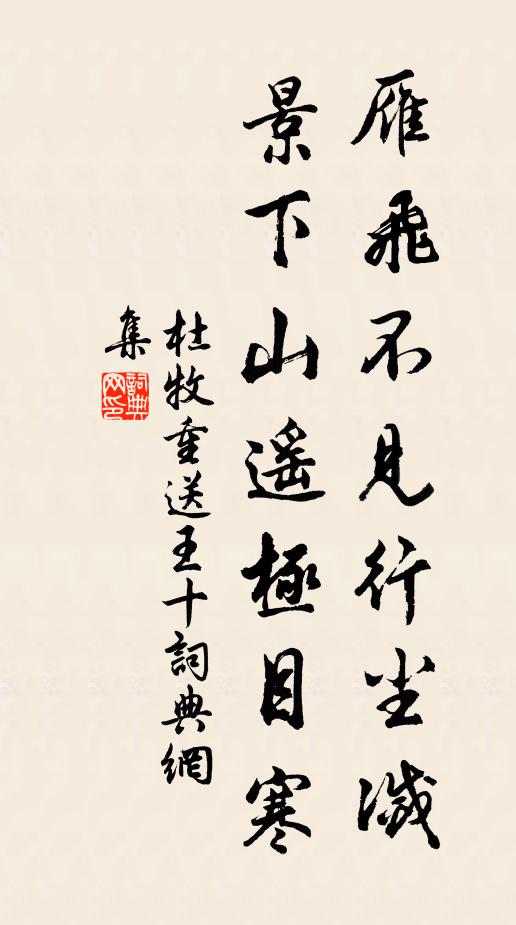 雁飛不見行尘滅
景下山遥極目寒
杜牧重送王十詞典網
集
詞典网印